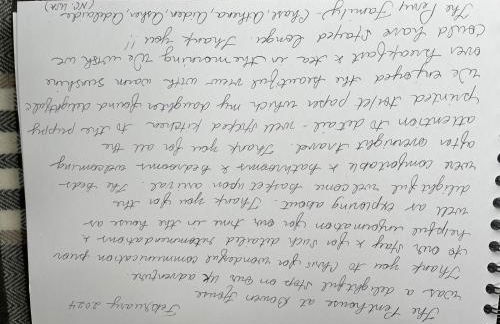 February 2024
The Penthouse at Bowen House
was a delightful stop on our UK adventure.
Thank you to Chris for wonderful communication prior
to our stay & for such detailed recommendations &
helpful information for our time in the house as
well as exploring about. Thank you for the
delightful welcome basket upon arrival. The beds
were comfortable & bathrooms & bedrooms welcoming
after overnight travel. Thank you for all the
attention to detail - well stocked kitchen to the puppy
printed toilet paper which my daughter found delightful.
We enjoyed the beautiful view with warm sunshine
over breakfast & tea in the morning. We wish we
could have stayed longer. Thank you!!
The Perry Family - Chast, Athena, Aiden, Asher, Adelaide